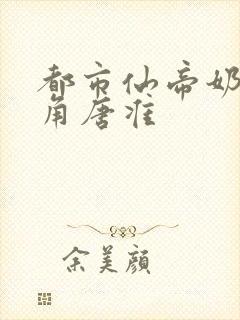 都市仙帝奶
角唐准
余美颜